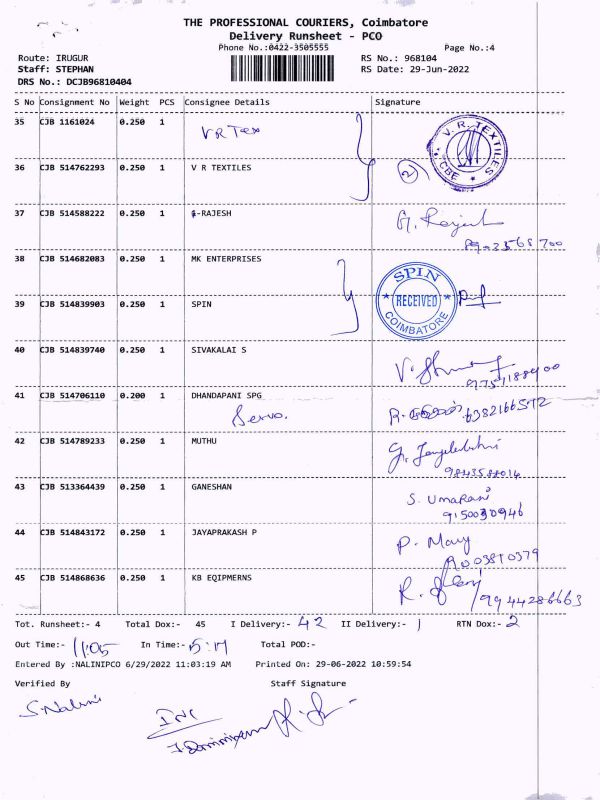 THE PROFESSIONAL COURIERS, Coimbatore
Delivery Runsheet - PCO
Phone No.:0422-3505555 Page No.:4
Route: IRUGUR RS No.: 968104
Staff: STEPHAN RS Date: 29-Jun-2022
DRS No.: DCJB96810404
S No Consignment No Weight PCS Consignee Details Signature
35 CJB 1161024 0.250 1 V R Tex
V. R. TEXTILES
CBE
36 CJB 514762293 0.250 1 V R TEXTILES 2
37 CJB 514588222 0.250 1 -RAJESH G. Rajesh
38 CJB 514682083 0.250 1 MK ENTERPRISES
SPIN
RECEIVED
COIMBATORE
39 CJB 514839903 0.250 1 SPIN
40 CJB 514839740 0.250 1 SIVAKALAI S
9751188900
41 CJB 514706110 0.200 1 DHANDAPANI SPG
Servo. 6382166572
42 CJB 514789233 0.250 1 MUTHU
9843588014
43 CJB 513364439 0.250 1 GANESHAN S. UMARANI
9150030946
44 CJB 514843172 0.250 1 JAYAPRAKASH P P. Mary
45 CJB 514868636 0.250 1 KB EQIPMERNS
9944286663
Tot. Runsheet:- 4 Total Dox:- 45 I Delivery:- 42 II Delivery:- 1 RTN Dox:- 2
Out Time:- 11:05 In Time:- 5:17 Total POD:-
Entered By :NALINIPCO 6/29/2022 11:03:19 AM Printed On: 29-06-2022 10:59:54
Verified By Staff Signature
S. Nalini